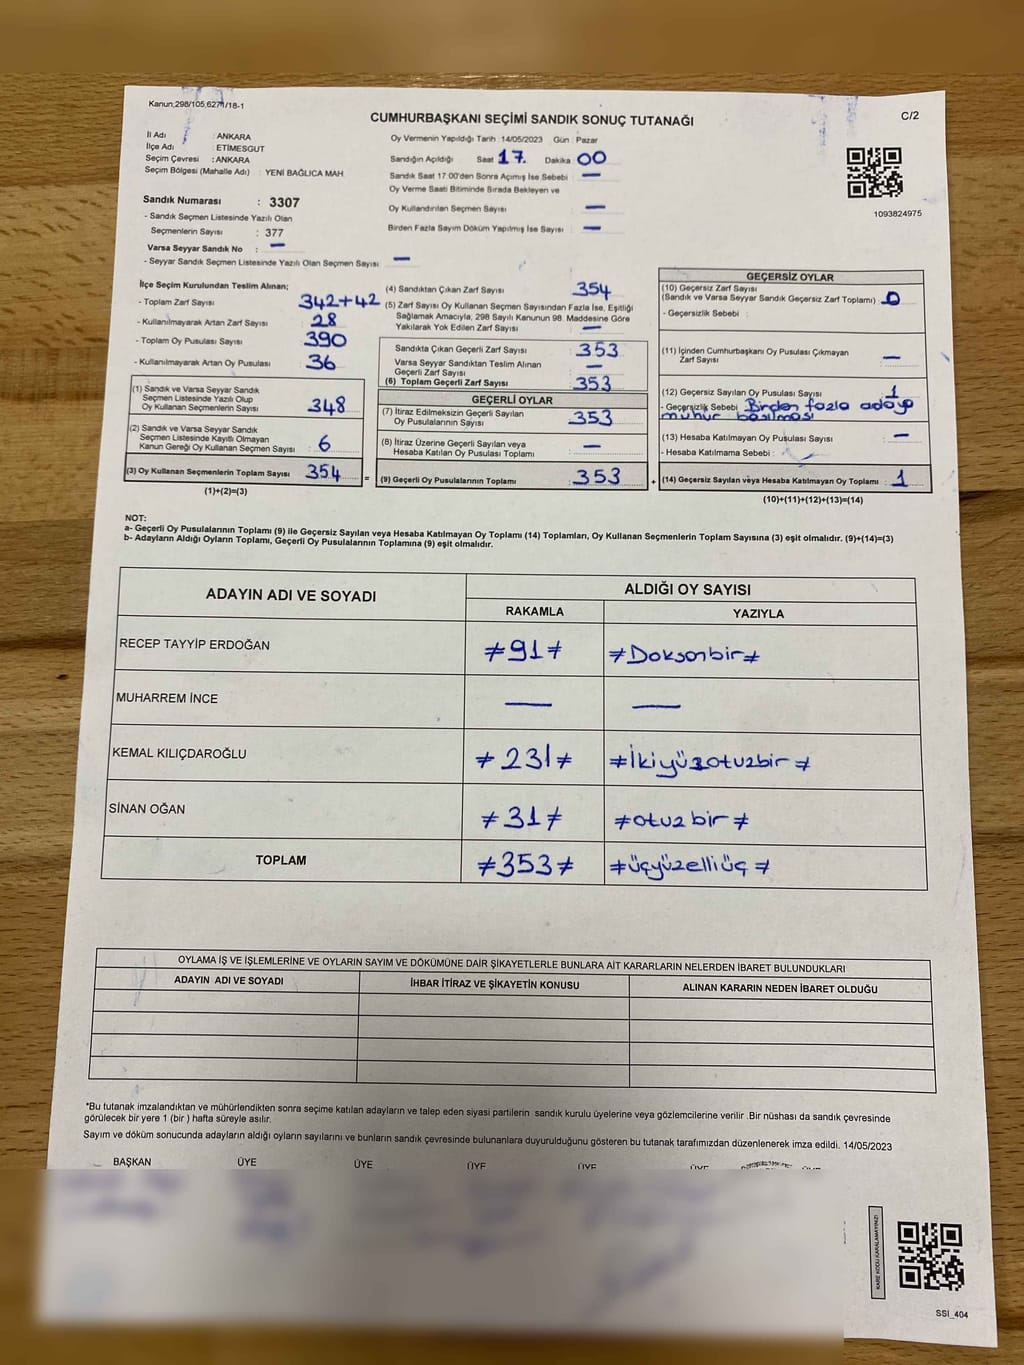 Kanun;298/105,6271/18-1
CUMHURBAŞKANI SEÇİMİ SANDIK SONUÇ TUTANAĞI
C/2
İl Adı : ANKARA
İlçe Adı : ETİMESGUT
Seçim Çevresi : ANKARA
Seçim Bölgesi (Mahalle Adı) : YENİ BAĞLICA MAH.
Oy Vermenin Yapıldığı Tarih :14/05/2023 Gün : Pazar
Sandığın Açıldığı Saat 17. Dakika 00
Sandık Saat 17:00'den Sonra Açımış İse Sebebi : —
Oy Verme Saati Bitiminde Sırada Bekleyen ve
Oy Kullandırılan Seçmen Sayısı : —
Birden Fazla Sayım Döküm Yapılmış İse Sayısı : —
1093824975
Sandık Numarası : 3307
- Sandık Seçmen Listesinde Yazılı Olan
Seçmenlerin Sayısı : 377
Varsa Seyyar Sandık No : —
- Seyyar Sandık Seçmen Listesinde Yazılı Olan Seçmen Sayısı : —
İlçe Seçim Kurulundan Teslim Alınan;
- Toplam Zarf Sayısı : 342+42
- Kullanılmayarak Artan Zarf Sayısı : 28
- Toplam Oy Pusulası Sayısı : 390
- Kullanılmayarak Artan Oy Pusulası : 36
(1) Sandık ve Varsa Seyyar Sandık
Seçmen Listesinde Yazılı Olup
Oy Kullanan Seçmenlerin Sayısı : 348
(2) Sandık ve Varsa Seyyar Sandık
Seçmen Listesinde Kayıtlı Olmayan
Kanun Gereği Oy Kullanan Seçmen Sayısı : 6
(3) Oy Kullanan Seçmenlerin Toplam Sayısı : 354
(1)+(2)=(3)
(4) Sandıktan Çıkan Zarf Sayısı : 354
(5) Zarf Sayısı Oy Kullanan Seçmen Sayısından Fazla İse, Eşitliği
Sağlamak Amacıyla, 298 Sayılı Kanunun 98. Maddesine Göre
Yakılarak Yok Edilen Zarf Sayısı : —
Sandıkta Çıkan Geçerli Zarf Sayısı : 353
Varsa Seyyar Sandıktan Teslim Alınan
Geçerli Zarf Sayısı : —
(6) Toplam Geçerli Zarf Sayısı : 353
GEÇERLİ OYLAR
(7) İtiraz Edilmeksizin Geçerli Sayılan
Oy Pusulalarının Sayısı : 353
(8) İtiraz Üzerine Geçerli Sayılan veya
Hesaba Katılan Oy Pusulası Toplamı : —
= (9) Geçerli Oy Pusulalarının Toplamı : 353
GEÇERSİZ OYLAR
(10) Geçersiz Zarf Sayısı
(Sandık ve Varsa Seyyar Sandık Geçersiz Zarf Toplamı) : 0
- Geçersizlik Sebebi :
(11) İçinden Cumhurbaşkanı Oy Pusulası Çıkmayan
Zarf Sayısı : —
(12) Geçersiz Sayılan Oy Pusulası Sayısı : 1
- Geçersizlik Sebebi Birden fazla adaya
mühür basılması
(13) Hesaba Katılmayan Oy Pusulası Sayısı : —
- Hesaba Katılmama Sebebi :
+ (14) Geçersiz Sayılan veya Hesaba Katılmayan Oy Toplamı : 1
(10)+(11)+(12)+(13)=(14)
NOT:
a- Geçerli Oy Pusulalarının Toplamı (9) ile Geçersiz Sayılan veya Hesaba Katılmayan Oy Toplamı (14) Toplamları, Oy Kullanan Seçmenlerin Toplam Sayısına (3) eşit olmalıdır. (9)+(14)=(3)
b- Adayların Aldığı Oyların Toplamı, Geçerli Oy Pusulalarının Toplamına (9) eşit olmalıdır.
ADAYIN ADI VE SOYADI ALDIĞI OY SAYISI
RAKAMLA YAZIYLA
RECEP TAYYİP ERDOĞAN ≠91≠ ≠Doksanbir≠
MUHARREM İNCE — —
KEMAL KILIÇDAROĞLU ≠231≠ ≠İkiyüzotuzbir≠
SİNAN OĞAN ≠31≠ ≠otuzbir≠
TOPLAM ≠353≠ ≠üçyüzelliüç≠
OYLAMA İŞ VE İŞLEMLERİNE VE OYLARIN SAYIM VE DÖKÜMÜNE DAİR ŞİKAYETLERLE BUNLARA AİT KARARLARIN NELERDEN İBARET BULUNDUKLARI
ADAYIN ADI VE SOYADI İHBAR İTİRAZ VE ŞİKAYETİN KONUSU ALINAN KARARIN NEDEN İBARET OLDUĞU
*Bu tutanak imzalandıktan ve mühürlendikten sonra seçime katılan adayların ve talep eden siyasi partilerin sandık kurulu üyelerine veya gözlemcilerine verilir .Bir nüshası da sandık çevresinde
görülecek bir yere 1 (bir ) hafta süreyle asılır.
Sayım ve döküm sonucunda adayların aldığı oyların sayılarını ve bunların sandık çevresinde bulunanlara duyurulduğunu gösteren bu tutanak tarafımızdan düzenlenerek imza edildi. 14/05/2023
BAŞKAN ÜYE ÜYE ÜYE ÜYE ÜYE ÜYE
KARE KODU KARALAMAYINIZ!
SSİ_404